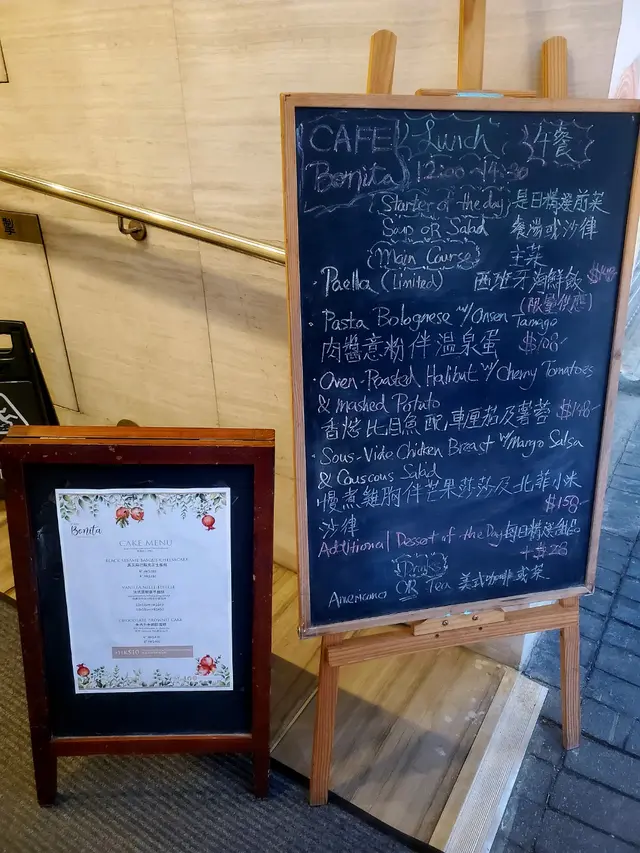 CAFE Lunch 午餐
Bonita 12:00 ~ 14:30
Starter of the day 是日精選前菜
Soup OR Salad 餐湯或沙律
Main Course 主菜
· Paella (Limited) 西班牙海鮮飯
(限量供應)
· Pasta Bolognese w/ Onsen Tamago
肉醬意粉伴溫泉蛋 $108-
· Oven-Roasted Halibut w/ Cherry Tomatoes
& mashed Potato
香烤比目魚配車厘茄及薯蓉 $148-
· Sous-Vide Chicken Breast w/ Mango Salsa
& Couscous Salad
慢煮雞胸伴芒果莎莎及北非小米
沙律 $158-
Additional Dessert of the Day 每日精選甜品
+ $28
Drinks
Americano OR Tea 美式咖啡或茶
Bonita
CAKE MENU